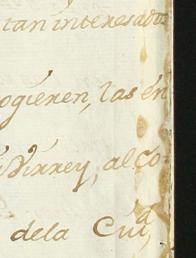 tan interesado
ogieren, las en
Virrey, al Co-
dela Ciud.